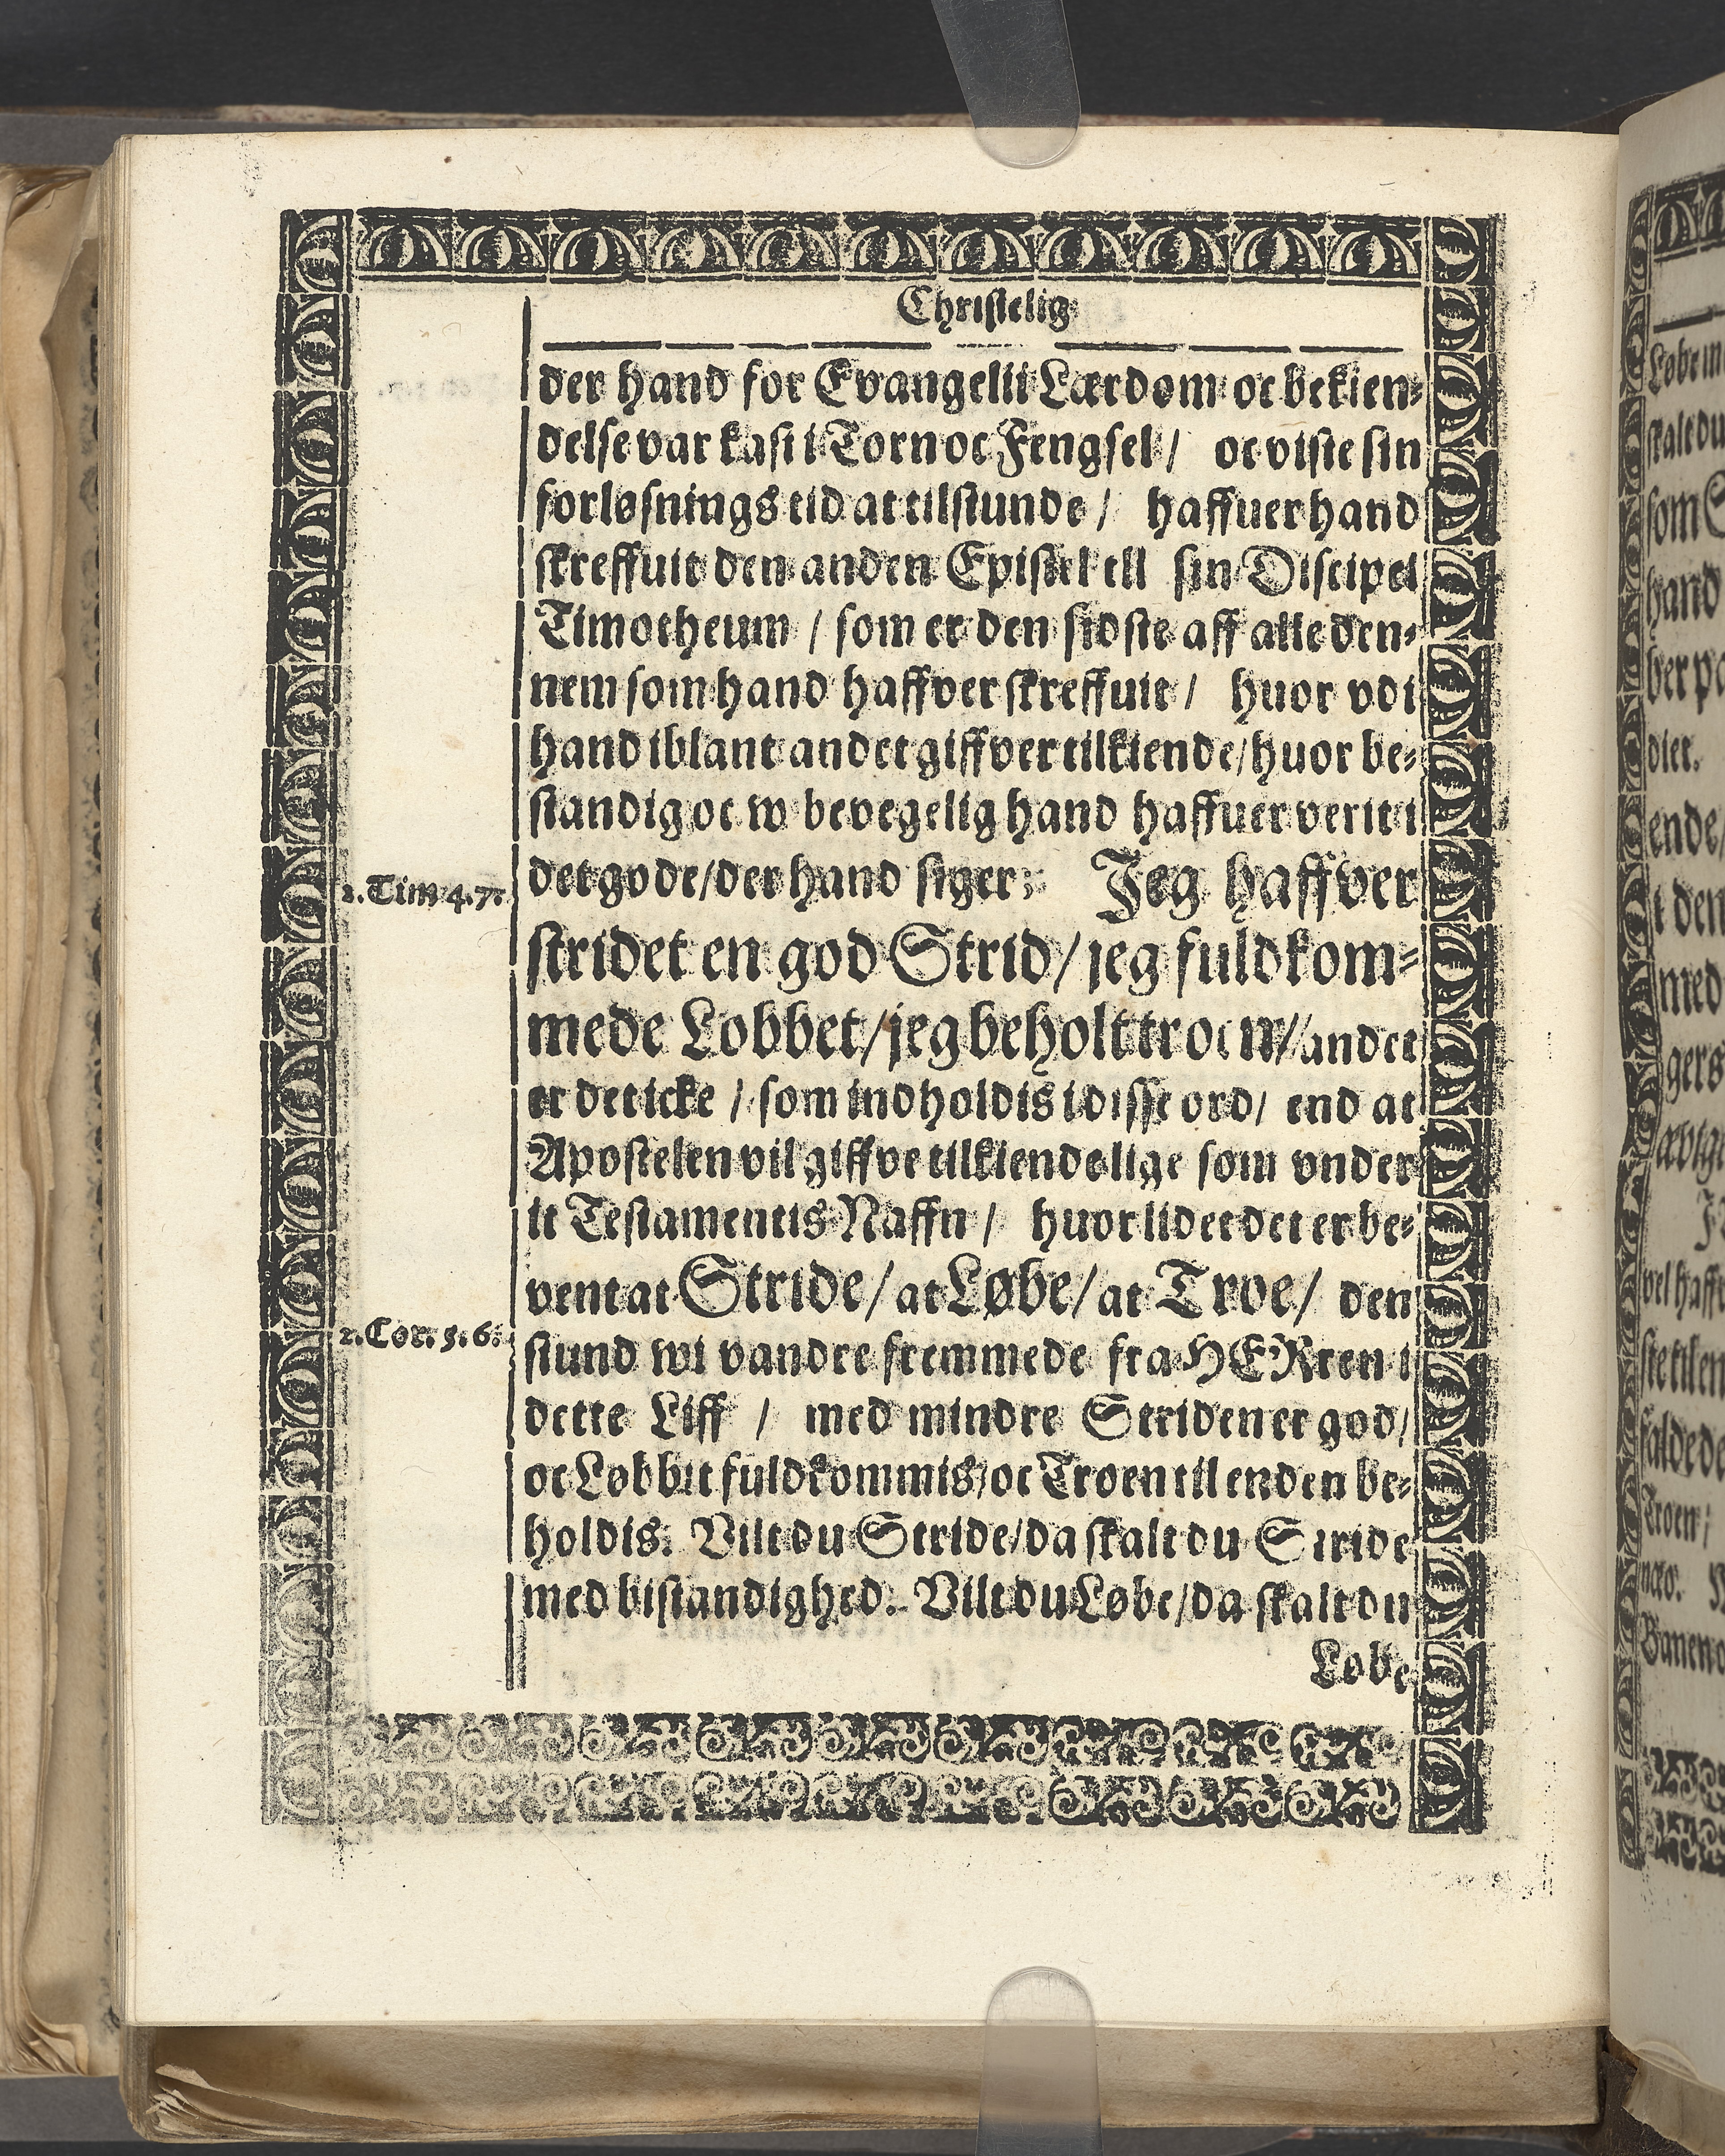 Christelig
der hand for Evangelii Lærdom oc bekien-
delse var kast i Torn oc Fengsel / oc viste sin
forløsnings tid at tilstunde / haffuer hand
skreffuit den anden Epistel till sin Discipel
Timotheum / som er den sidste aff alle den-
nem som hand haffver skreffuit / huor vdi
hand iblant andet giffver tilkiende / huor be-
standig oc w bevegelig hand haffuer verit i
2. Tim 4.7.
det gode / der hand siger: Jeg haffver
stridet en god Strid / jeg fuldkom-
mede Lobbet / jeg beholt troen // andet
er det icke / som indholdis i disse ord / end at
Apostelen vil giffve tilkiendelige som vnder
it Testamentis Naffn / huor lidet det er be-
vent at Stride / at Løbe / at Troe / den
2. Cor. 5. 6.
stund wi vandre fremmede fra HERren i
dette Liff / med mindre Striden er god /
oc Løbbit fuldkommis / oc Troen til enden be-
holdis. Vilt du Stride / da skalt du Stride
med bistandighed. Vilt du Løbe / da skalt du
Løbe